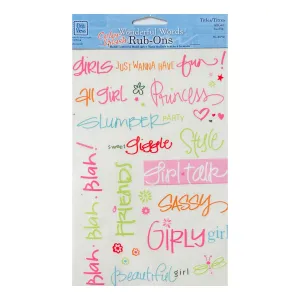 Wonderful Words
Rub-Ons
GiRLS JUST WANNA HAVE fun!
All GiRL Princess
SLUMBER PARTY
Giggle Style
Blah! Blah. Blah.
FRiENDS
girl·talk
SASSY
GiRLY girl
Beautiful girl